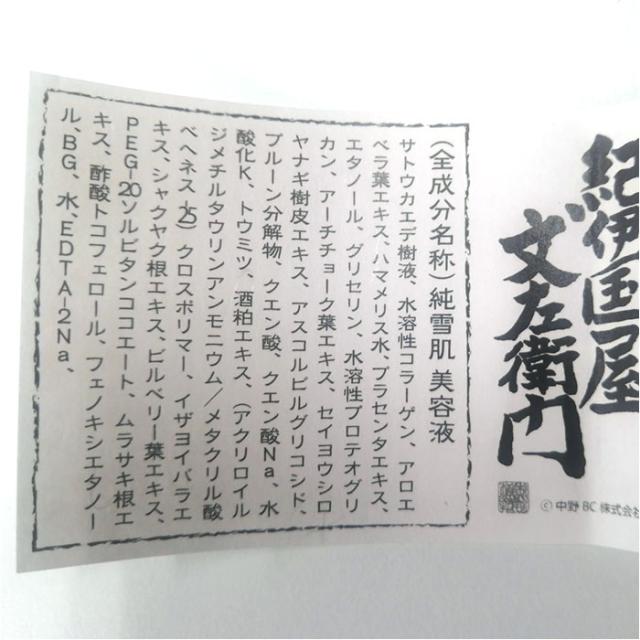 紀伊国屋
文左衛門
©中野BC株式会
(全成分名称)純雪肌 美容液
サトウカエデ樹液、水溶性コラーゲン、アロエ
ベラ葉エキス、ハマメリス水、プラセンタエキス、
エタノール、グリセリン、水溶性プロテオグリ
カン、アーチチョーク葉エキス、セイヨウシロ
ヤナギ樹皮エキス、アスコルビルグリコシド、
プルーン分解物、クエン酸、クエン酸Na、水
酸化K、トウミツ、酒粕エキス、(アクリロイル
ジメチルタウリンアンモニウム/メタクリル酸
ベヘネス-25)クロスポリマー、イザヨイバラエ
キス、シャクヤク根エキス、ビルベリー葉エキス、
PEG-20ソルビタンココエート、ムラサキ根エ
キス、酢酸トコフェロール、フェノキシエタノー
ル、BG、水、EDTA-2Na、